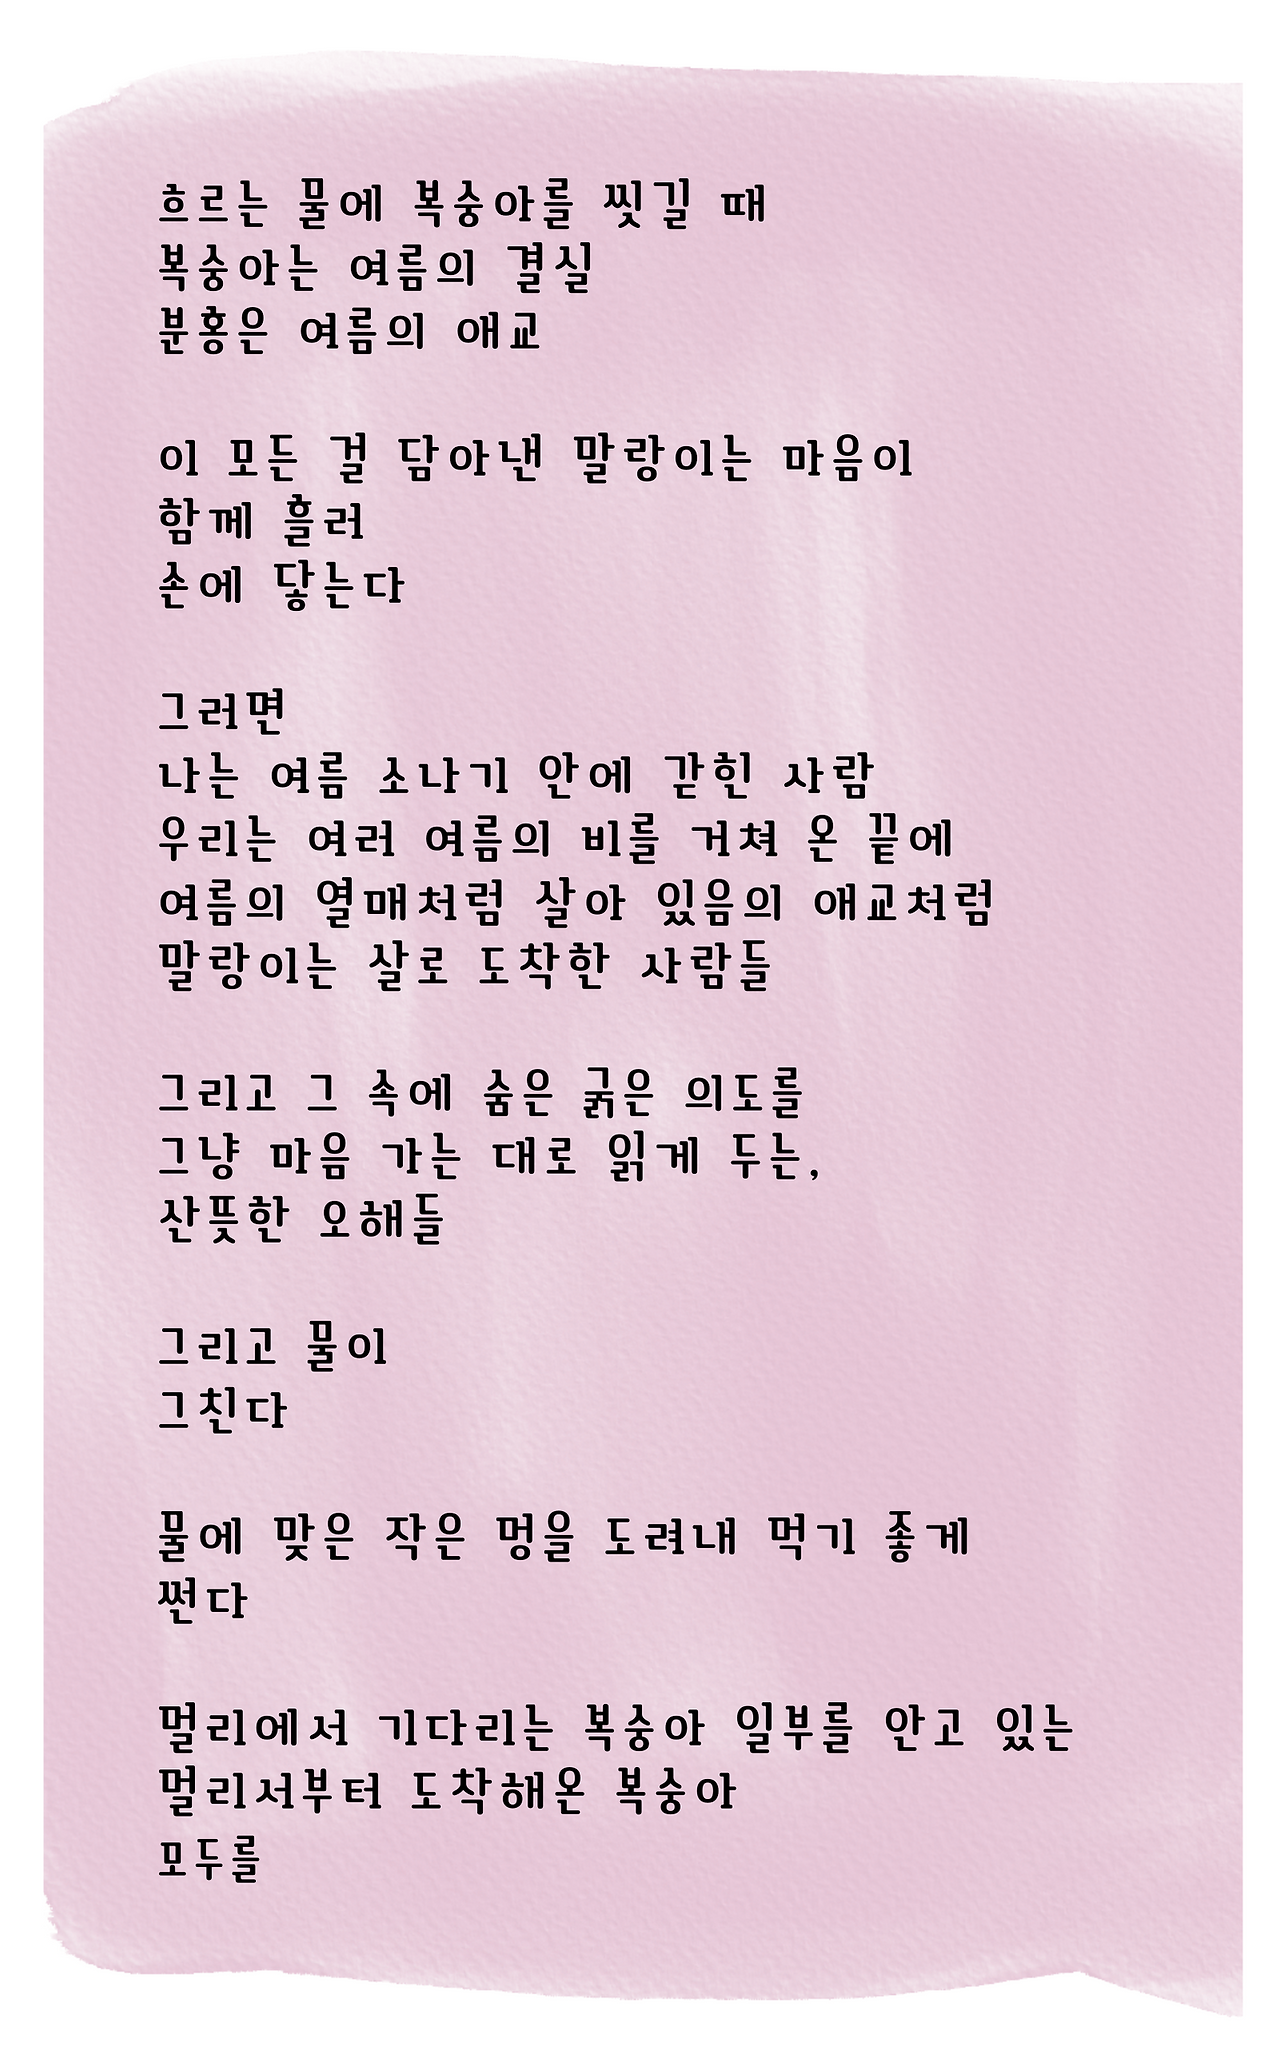 흐르는 물에 복숭아를 씻길 때
복숭아는 여름의 결실
분홍은 여름의 애교
이 모든 걸 담아낸 말랑이는 마음이
함께 흘러
손에 닿는다
그러면
나는 여름 소나기 안에 갇힌 사람
우리는 여러 여름의 비를 거쳐 온 끝에
여름의 열매처럼 살아 있음의 애교처럼
말랑이는 살로 도착한 사람들
그리고 그 속에 숨은 굵은 의도를
그냥 마음 가는 대로 읽게 두는,
산뜻한 오해들
그리고 물이
그친다
물에 맞은 작은 멍을 도려내 먹기 좋게
썬다
멀리에서 기다리는 복숭아 일부를 안고 있는
멀리서부터 도착해온 복숭아
모두를